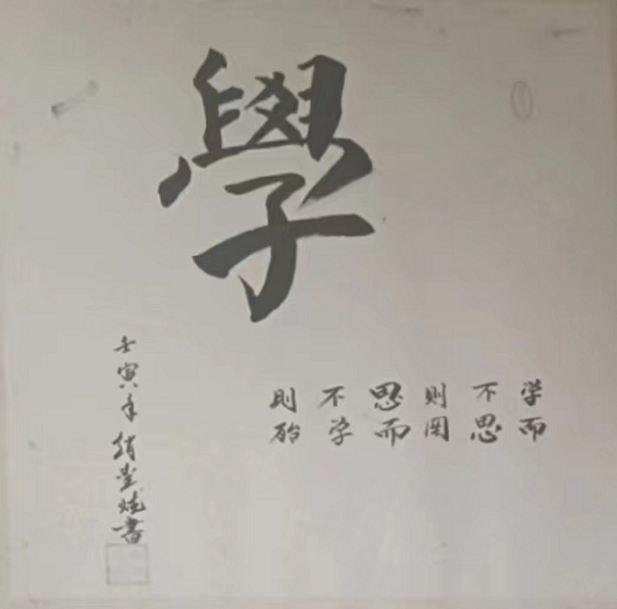 學
学而
不思
则罔
思而
不学
则殆
壬寅年
书